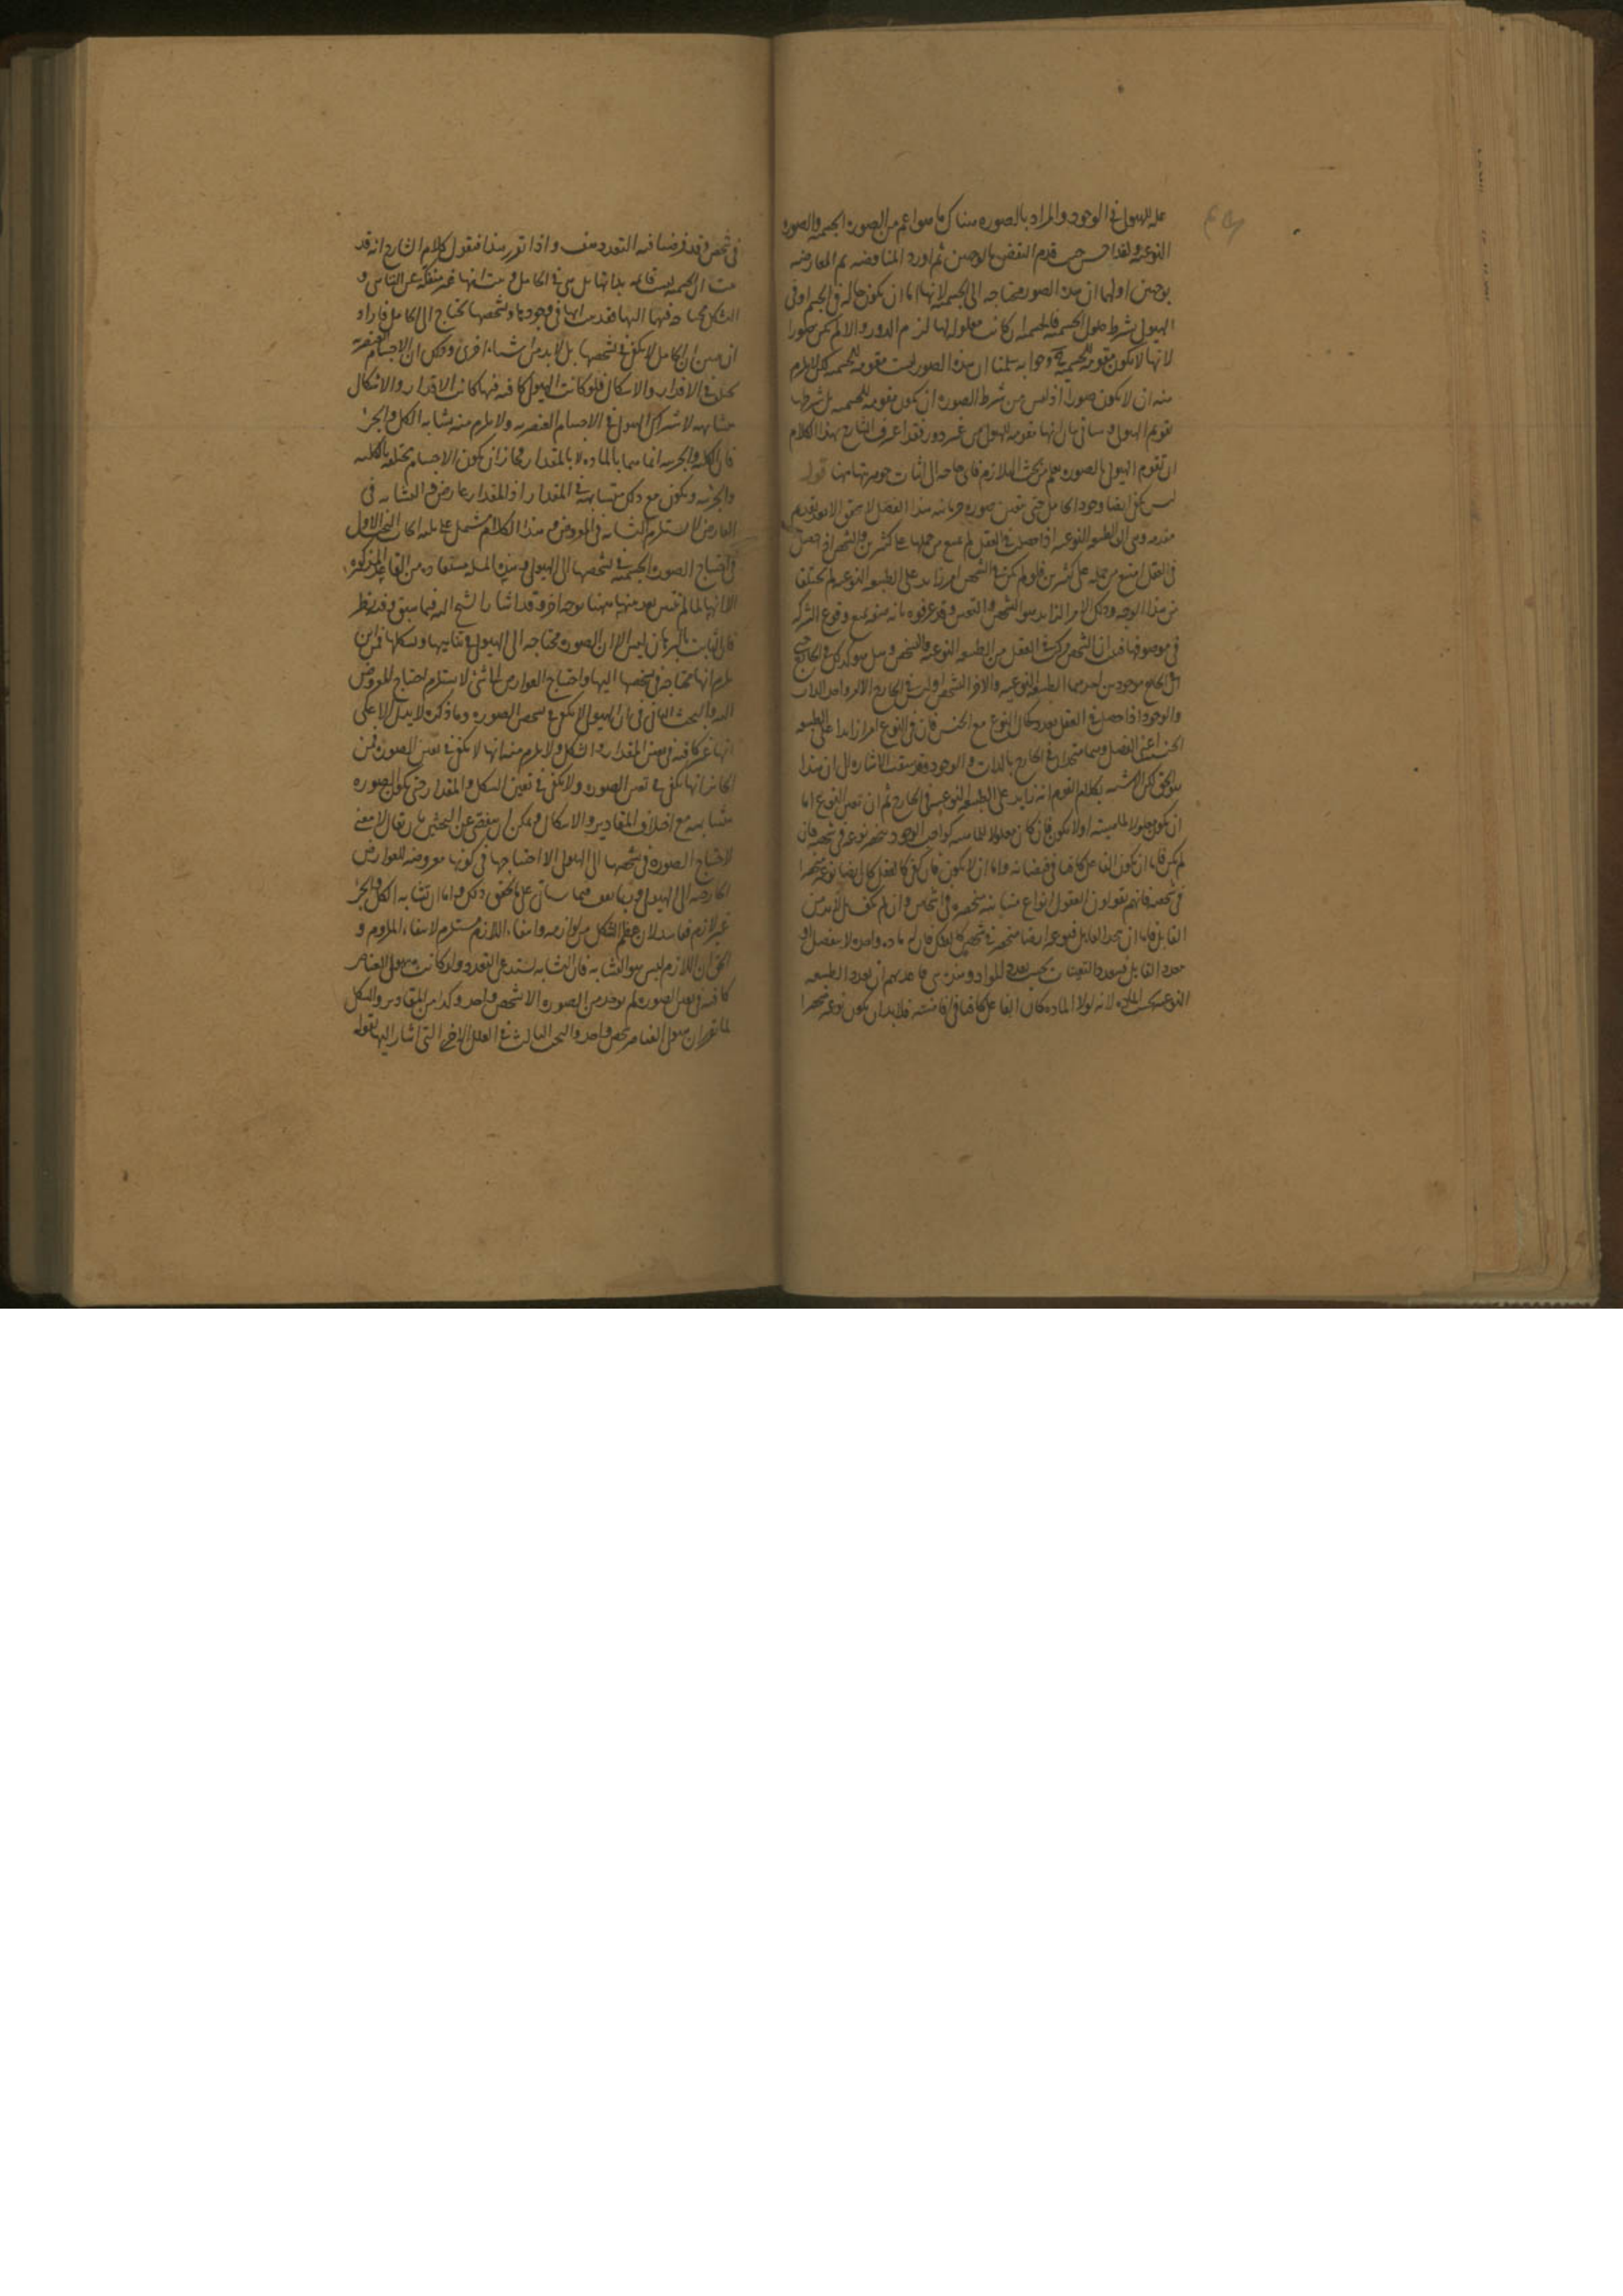 عله للهيولى فى الوجود والمراد بالصوره هناك ما هو اعم من الصوره الجسميه والصوره
النوعيه ولقد احسن حيث قدم النقض بالوجهين ثم اورد المناقضه ثم المعارضه
بوجهين اولهما ان هذه الصور محتاجه الى الجسميه لانها اما ان يكون حاله فى الجسم او فى
الهيولى بشرط حلول الجسميه فالجسميه ان كانت معلوله لها لزم الدور والا لم يكن صورا
لانها لا يكون مقومه للجسميه وجوابه سلمنا ان هذه الصور ليست مقومه للجسميه لكن لا يلزم
منه ان لا يكون صورا اذ ليس من شرط الصوره ان يكون مقومه للجسميه بل شرطها
تقويم الهيولى وسيأتى بيان انها مقومه للهيولى من غير دور فقد اعترف الشارح بهذا الكلام
ان تقوم الهيولى بالصوره يعلم من بحث التلازم فاى حاجه الى اثبات جوهريتها هنا قوله
ليس يكفى ايضا وجود الحامل حتى يتعين صوره جرمانيه هذا الفصل لا يتحقق الا بعد تقديم
مقدمه وهى ان الطبيعه النوعيه اذا حصلت فى العقل لم يمنع من حملها على كثيرين والشخص اذا حصل
فى العقل امتنع من حمله على كثيرين فلو لم يكن فى الشخص امر زايد على الطبيعه النوعيه لم يختلفا
من هذا الوجه وذلك الامر الزايد هو التشخص والتعين وقد عرفوه بانه صفه يمنع وقوع الشركه
فى موصوفها فبان ان الشخص مركب فى العقل من الطبيعه النوعيه والتشخص وهل هو كذلك فى الخارج حتى
ان فى الخارج موجودين احدهما الطبيعه النوعيه والاخر التشخص او ليس فى الخارج الا امر واحد الذات
والوجود اذا حصل فى العقل تعدد كحال النوع مع الجنس فان فى النوع امرا زايدا على الطبيعه
الجنسيه اعنى الفصل وهما متحدان فى الخارج بالذات والوجود وقد سبقت الاشاره الى ان هذا
هو الحق لكن الاشبه بكلام القوم انه زايد على الطبيعه النوعيه فى الخارج ثم ان تعين النوع اما
ان يكون معلولا لماهيته او لا يكون فان كان معلولا للماهيه كواجب الوجود ينحصر نوعه فى شخصه فان
لم يكن فاما ان يكون الفاعل كافيا فى فيضانه واما ان لا يكون فان كفى كالعقل كان ايضا نوعه منحصرا
فى شخصه فانهم يقولون العقول انواع متباينه منحصره فى اشخاص وان لم يكف بل لا بد من
القابل فاما ان يتحد القابل فنوعه ايضا منحصر فى شخصه كالفلك فان له ماده واحده لا ينفصل او
يتعدد القابل فيتعدد التعينات بحسب تعدد المواد ومن هذا يرى قاعدتهم ان تعدد الطبيعه
النوعيه بحسب الماده لانه لولا الماده كان الفاعل كافيا فى افاضته فلا بد ان يكون نوعه منحصرا
فى شخص وقد فرضنا فيه التعدد هف واذا تقرر هذا فنقول كلام الشارح انه قد
ثبت ان الجسميه ليست قائمه بذاتها بل هى فى الحامل وثبت انها غير منفكه عن التناهى و
التشكل محتاجه فيها اليها فقد ثبت انها فى وجودها وتشخصها تحتاج الى الحامل فاراد
ان يبين ان الحامل لا يكفى فى تشخصها بل لا بد من اشياء اخرى وذلك ان الاجسام العنصريه
يختلف فى الاقدار والاشكال فلو كانت الهيولى كافيه فيها كانت الاقدار والاشكال
متشابهه لاشتراك الهيولى فى الاجسام العنصريه ولا يلزم منه تشابه الكل والجزء
فان الكليه والجزئيه انما هما بالماده لا بالمقدار فجاز ان يكون الاجسام مختلفه بالكليه
والجزئيه ويكون مع ذلك متشابهه فى المقدار اذ المقدار عارض والتشابه فى
العارض لا يستلزم التشابه فى المعروض وهذا الكلام يشتمل على ثلثه ابحاث البحث الاول
فى احتياج الصوره الجسميه فى تشخصها الى الهيولى وهذه المسئله مستفاده من القاعده المذكوره
الا انها لما لم تتبين بعد منها ههنا بوجه اخر وقد اشار الشيخ اليه فيما سبق وفيه نظر
فان الثابت بالبرهان ليس الا ان الصوره محتاجه الى الهيولى فى تناهيها وشكلها فمن اين
يلزم انها محتاجه فى تشخصها اليها واحتياج العوارض الى شئ لا يستلزم احتياج المعروض
اليه والبحث الثانى فى ان الهيولى لا يكفى فى تشخص الصوره وما ذكره لا يدل الا على
انها غير كافيه فى تعين المقدار والشكل ولا يلزم منه انها لا يكفى فى تعين الصوره فمن
الجائز انها يكفى فى تعين الصوره ولا يكفى فى تعين الشكل والمقدار حتى يكون الصوره
متشابهه مع اختلاف المقادير والاشكال ويمكن ان يتفصى عن البحثين بان يقال لا معنى
لاحتياج الصوره فى تشخصها الى الهيولى الا احتياجها فى كونها معروضه للعوارض
الخارجه الى الهيولى وربما يقف فيما سيأتى على تحقيق ذلك واما ان تشابه الكل والجزء
غير لازم ففاسد لان عظم الشكل من لوازمه وانتفاء اللازم مستلزم لانتفاء الملزوم و
الحق ان اللازم ليس هو التشابه فان التشابه يستدعى التعدد ولو كانت هيولى العناصر
كافيه فى تعين الصوره لم يوجد من الصوره الا شخص واحد وكذا من المقادير والشكل
لما تقرر ان هيولى العناصر شخص واحد والبحث الثالث فى العلل الاخرى التى اشار اليها بقوله